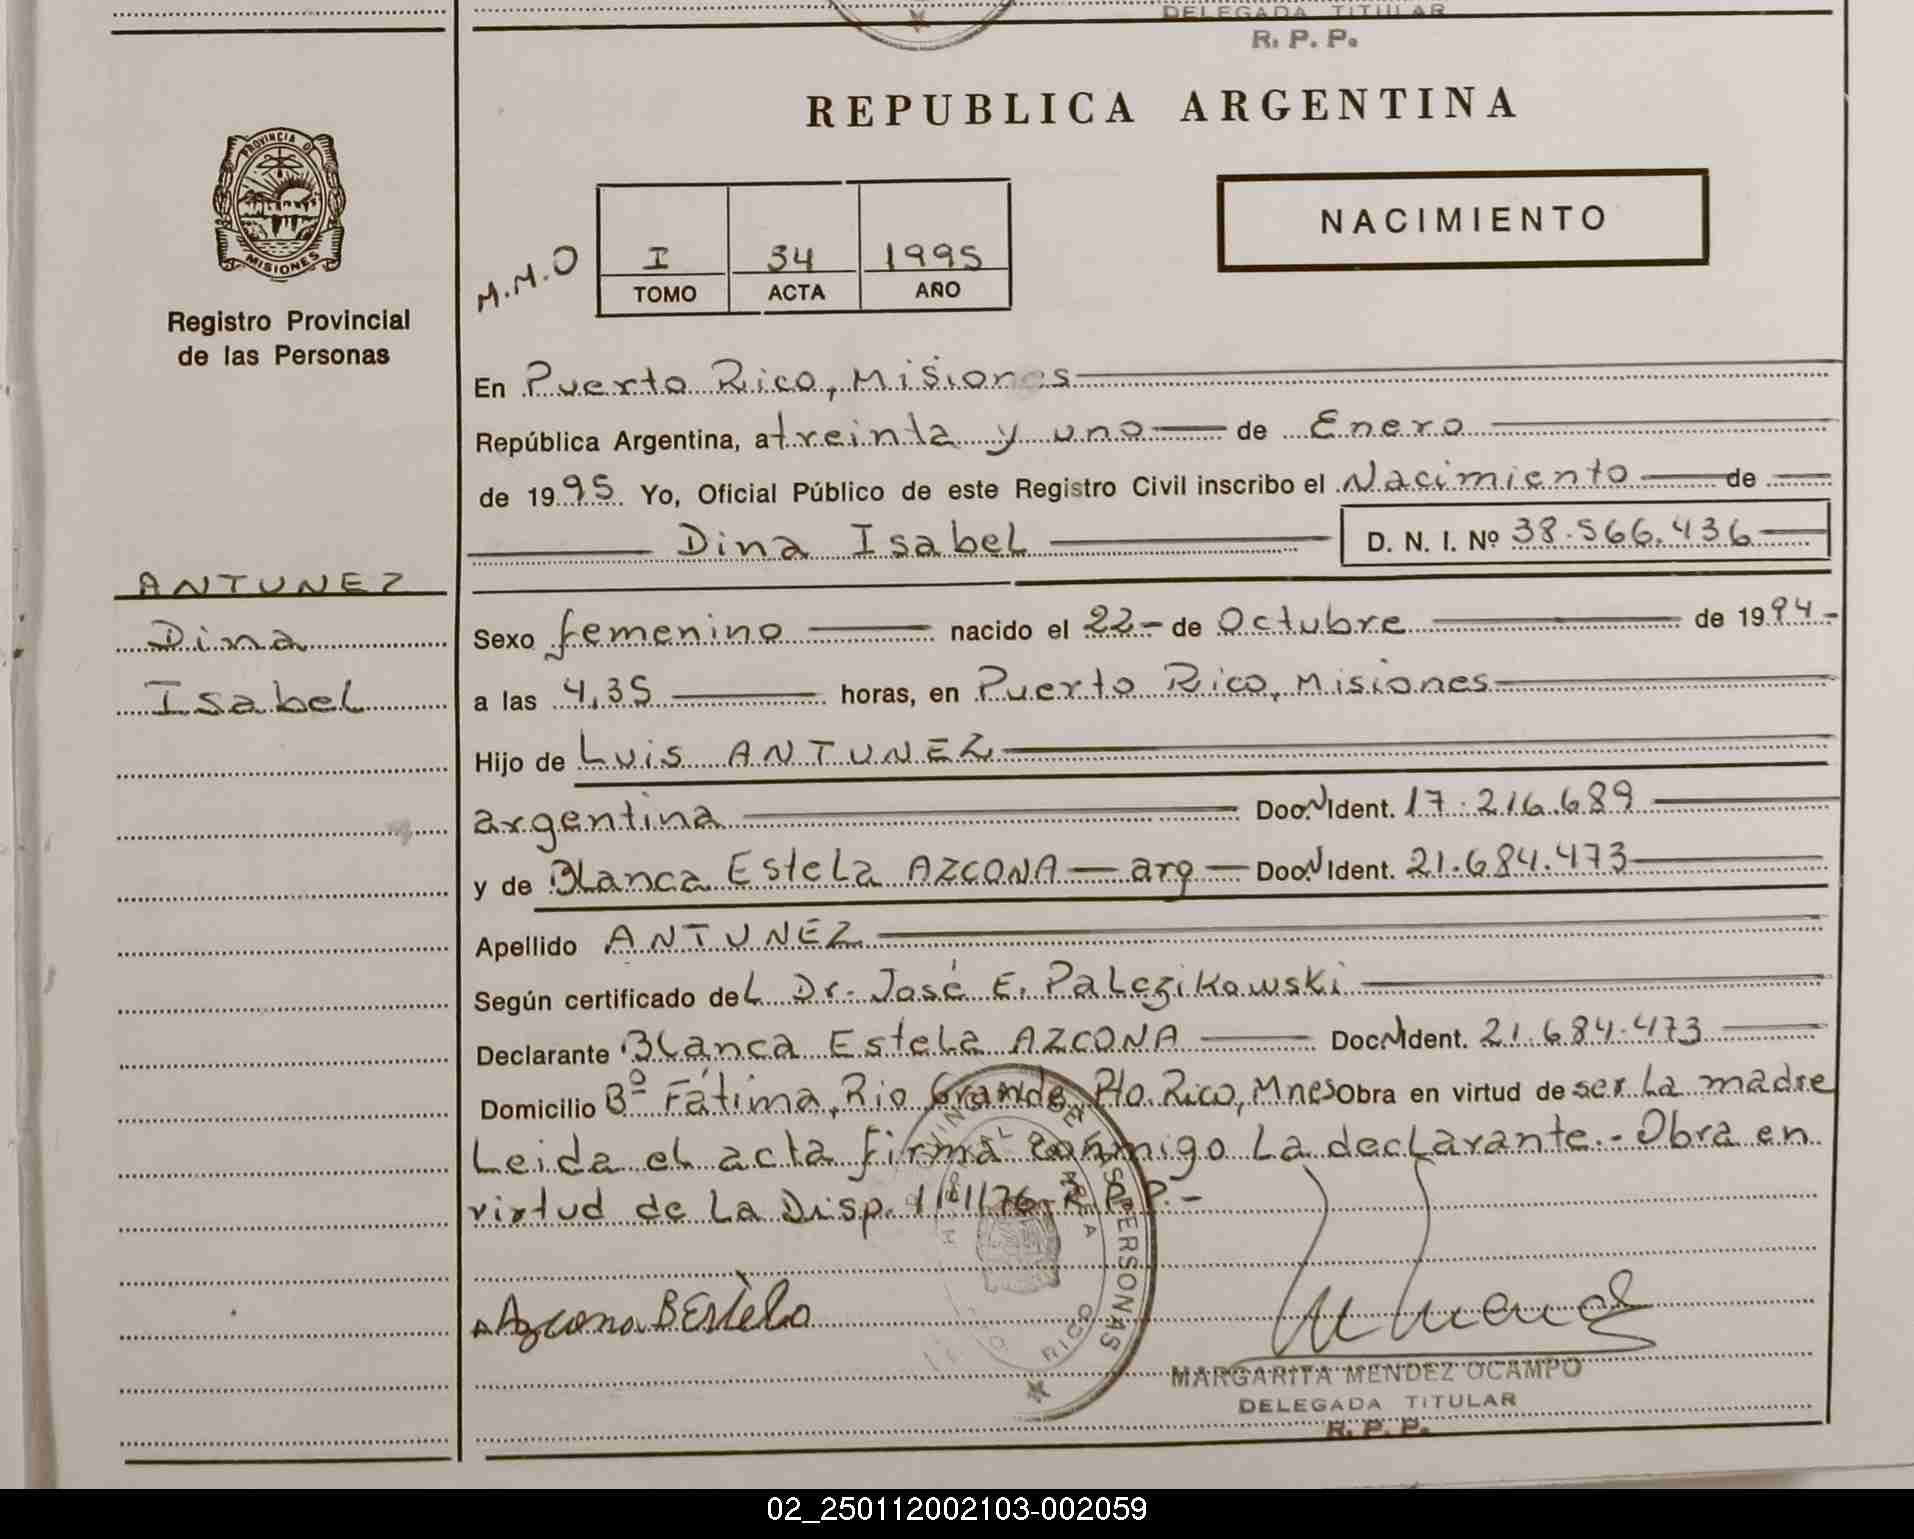 DELEGADA TITULAR
R. P. P.
REPUBLICA ARGENTINA
PROVINCIA DE
MISIONES
Registro Provincial
de las Personas
NACIMIENTO
M.M.O
I 34 1995
TOMO ACTA AÑO
En Puerto Rico, Misiones
República Argentina, a treinta y uno de Enero
de 1995 Yo, Oficial Público de este Registro Civil inscribo el Nacimiento de
Dina Isabel D. N. I. Nº 38.566.436
ANTUNEZ
Dina
Isabel
Sexo femenino nacido el 22 - de Octubre de 1994 -
a las 4,35 horas, en Puerto Rico, Misiones
Hijo de Luis ANTUNEZ
argentina Doc. N Ident. 17.216.689
y de Blanca Estela AZCONA — arg — Doc. N Ident. 21.684.473
Apellido ANTUNEZ
Según certificado del Dr. José E. Palezikowski
Declarante Blanca Estela AZCONA Doc N Ident. 21.684.473
Domicilio Bº Fátima, Rio Grande, Pto. Rico, Mnes Obra en virtud de ser la madre
Leida el acta firma conmigo la declarante.- Obra en
virtud de la Disp. 11/1/76- R.P.P.-
PERSONAS
RICO
Azcona B Estela
MARGARITA MENDEZ OCAMPO
DELEGADA TITULAR
R. P. P.
02_250112002103-002059